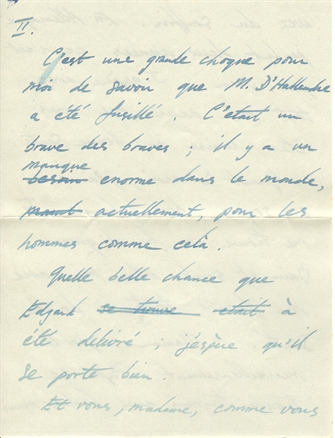 II.
C'est une grande choque pour
moi de savoir que M. D'Hallendre
a été fusillé. C'était un
brave des braves ; il y a un
manque
besoin enorme dans le monde,
actuellement, pour les
hommes comme celà.
Quelle belle chance que
Edjank se trouve etait à
été delivré ; j'éspèce qu'il
se porte bien.
Et vous, madame, comme vous